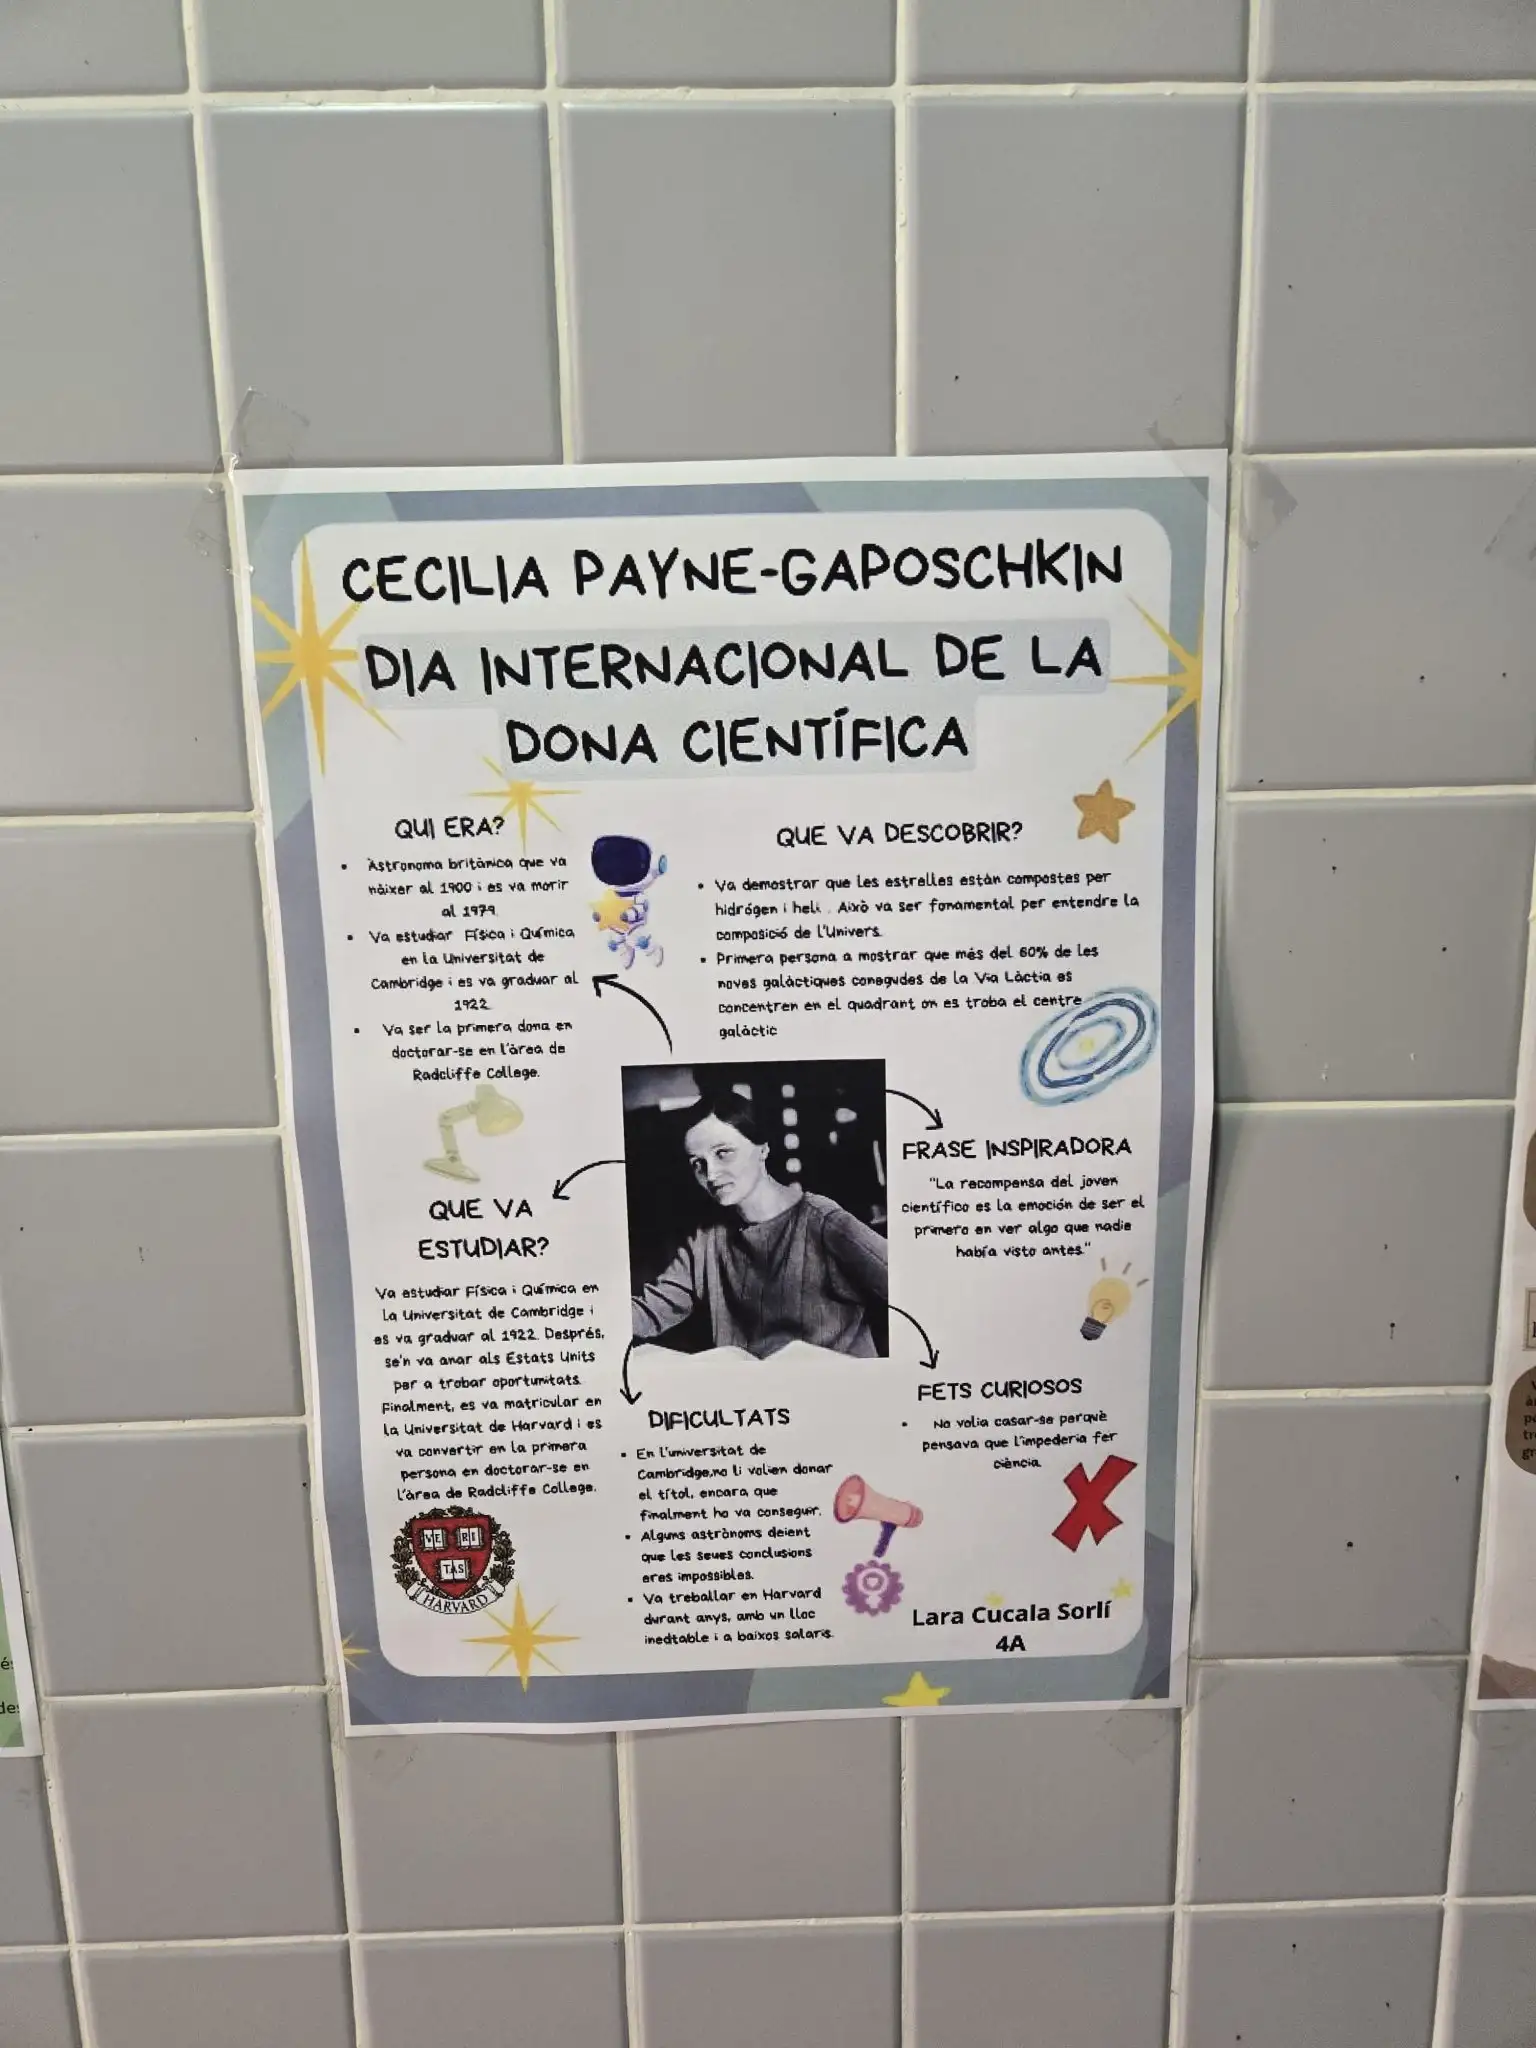 CECILIA PAYNE-GAPOSCHKIN
DIA INTERNACIONAL DE LA
DONA CIENTÍFICA
QUI ERA?
• Astronoma britànica que va
nàixer al 1900 i es va morir
al 1979.
• Va estudiar Física i Química
en la Universitat de
Cambridge i es va graduar al
1922.
• Va ser la primera dona en
doctorar-se en l'àrea de
Radcliffe College.
QUE VA DESCOBRIR?
• Va demostrar que les estrelles están compostes per
hidrógen i heli. Això va ser fonamental per entendre la
composició de l'Univers.
• Primera persona a mostrar que més del 60% de les
noves galàctiques conegudes de la Via Làctia es
concentren en el quadrant on es troba el centre
galàctic
FRASE INSPIRADORA
"La recompensa del joven
científico es la emoción de ser el
primero en ver algo que nadie
había visto antes."
QUE VA
ESTUDIAR?
Va estudiar Física i Química en
la Universitat de Cambridge i
es va graduar al 1922. Després,
se'n va anar als Estats Units
per a trobar oportunitats.
Finalment, es va matricular en
la Universitat de Harvard i es
va convertir en la primera
persona en doctorar-se en
l'àrea de Radcliffe College.
VE RI
TAS
HARVARD
DIFICULTATS
• En l'universitat de
Cambridge,no li volien donar
el títol, encara que
finalment ho va conseguir.
• Alguns astrònoms deient
que les seues conclusions
eres impossibles.
• Va treballar en Harvard
durant anys, amb un lloc
inedtable i a baixos salaris.
FETS CURIOSOS
• No volia casar-se perquè
pensava que l'impederia fer
ciència.
Lara Cucala Sorlí
4A